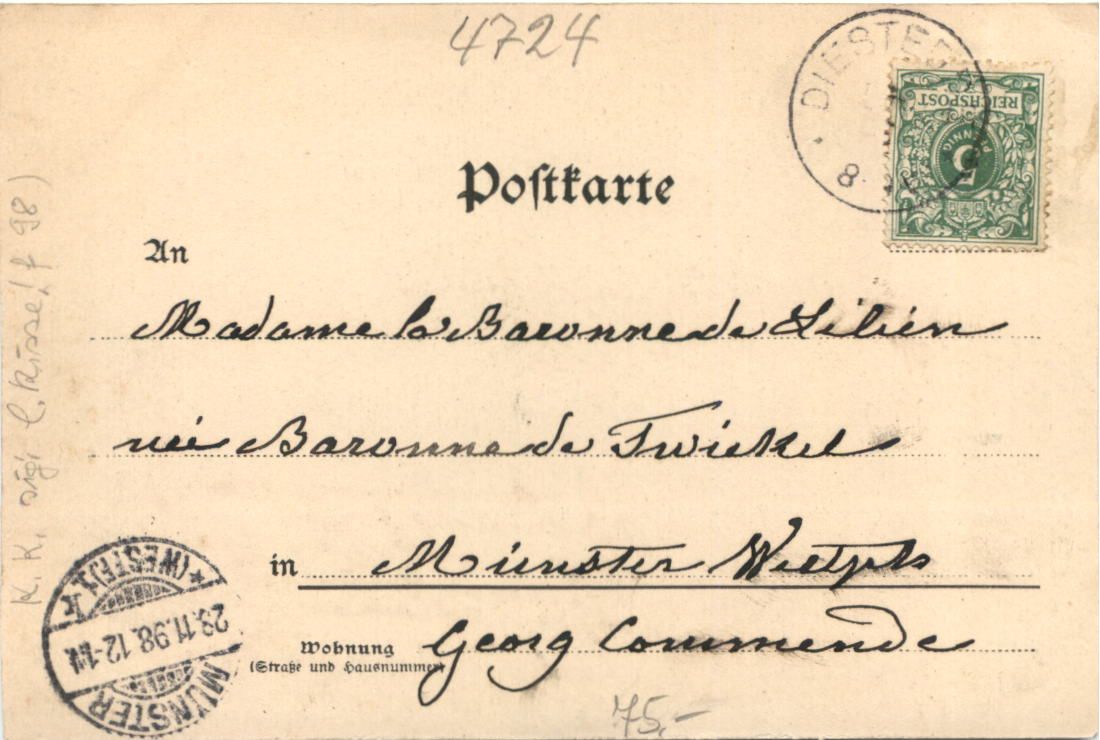 4724
DIESTED
8
REICHSPOST
5
PFENNIG
Postkarte
An
Madame la Baronne de Lilien
née Baronne de Twickel
in Münster Westph
Wohnung Georg Commende
(Straße und Hausnummer)
MÜNSTER
23.11.98.12-1N.
*(WESTF.)1.
K. K.
98)
75,-